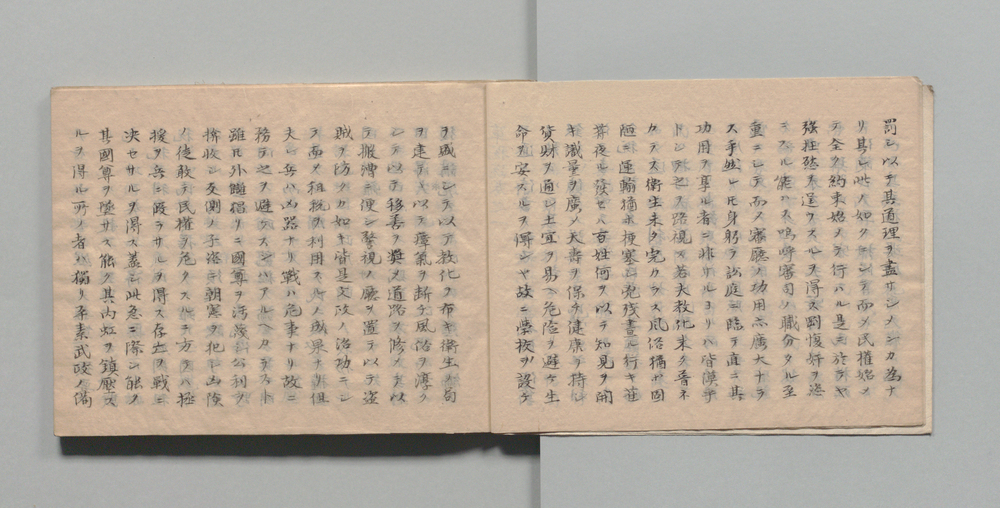 罰シ以テ其道理ヲ盡サシメンカ為ナ
リ其レ此ノ如クニシテ而メ民権始メ
テ全ク約束始メテ行ハル是ニ於テヤ
強狂孱ヲ逞ウスルヲ得ス劉復奸ヲ恣
ニスル能ハス嗚呼審司ノ職分タル至
重ニシテ而メ審廳ノ功用亦廣大ナラ
ス乎然レ氏身躬ラ訟庭ニ臨テ直ニ其
功用ヲ享ル者ニ非サルヨリハ皆漠乎
トシテ之ヲ路視ス若夫教化未タ普ネ
カラス衛生未タ完カラス風俗猶ホ固
陋ニ運輸猶ホ梗塞シ兇残晝ル行キ盗
幕夜ル發セハ百姓何ヲ以テ知見ヲ開
キ識量ヲ廣メ夭壽ヲ保チ健康ヲ持ル
貨財ヲ通シ土宜ヲ易ヘ危険ヲ避ケ生
命ヲ安スルヲ得ンヤ故ニ黌校ヲ設ケ
ヲ盛ニシテ以テ教化ヲ布キ衛生ノ局
ヲ建テ以テ瘴氣ヲ断チ風俗ヲ淳ク
シテ以テ移善ヲ奨メ道路ヲ修メテ以
テ搬漕ニ便シ警視ノ廳ヲ置テ以テ盗
賊ヲ防クカ如キ皆是文政ノ治功ニシ
テ而メ租税ヲ利用スルノ成果ナリ但
夫レ兵ハ凶器ナリ戦ハ危事ナリ故ニ
務テ之ヲ避クスンハアルヘカラスト
雖氏外讎猖リニ國尊ヲ汚蔑シ公利ヲ
搒收シ反側ノ子恣ニ朝憲ヲ犯シ凶険
ノ徒敢テ民権ヲ危タスルニ方テハ極
援ヲ兵ニ假ラサルヲ得ス存亡ヲ戦ニ
决セサルヲ得ス蓋シ此急ニ際シ能ク
其國尊ヲ墜サス能ク其内虹ヲ鎮壓ス
ルヲ得ル所ノ者ハ獨リ平素武政ノ備